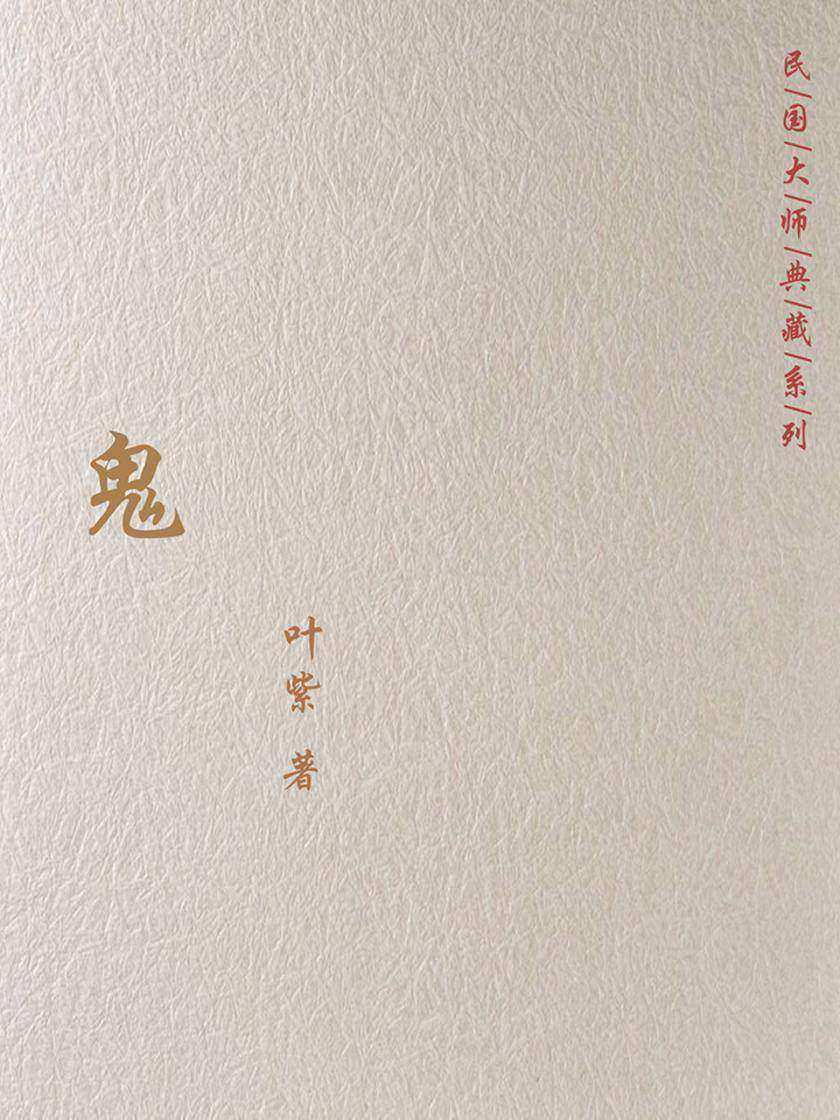 民/国/大/师/典/藏/系/列
鬼
叶紫 著